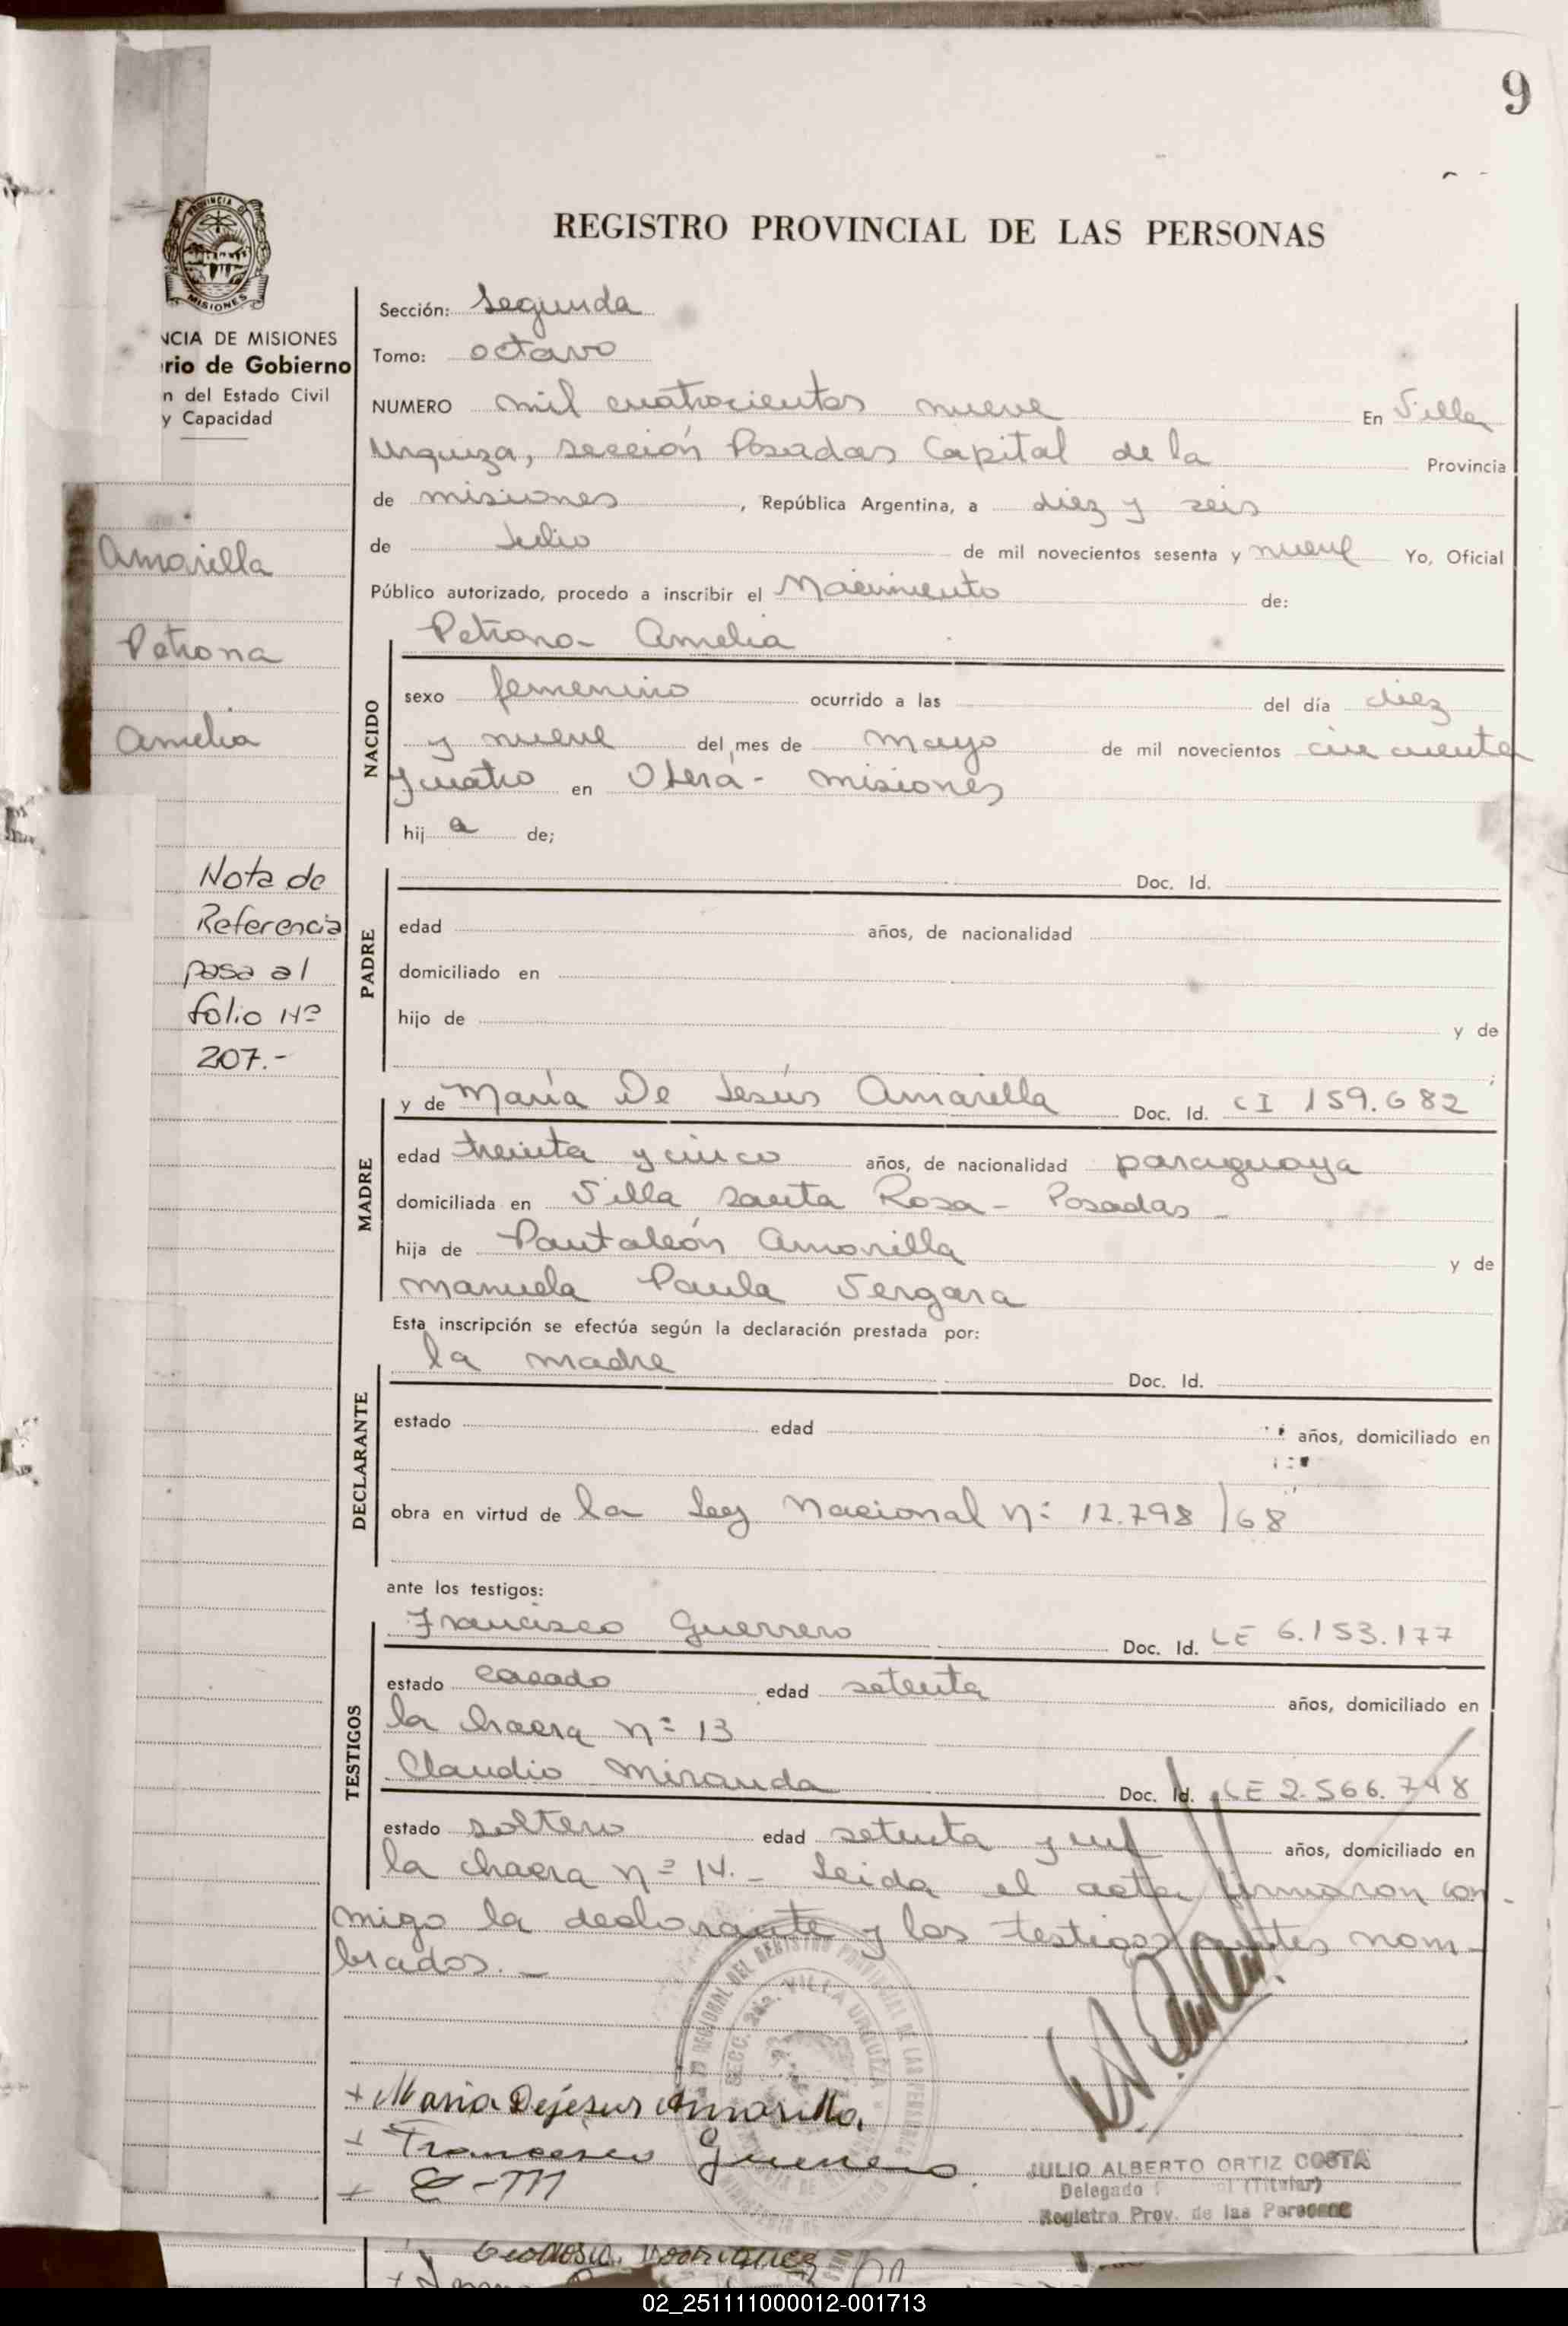 9
REGISTRO PROVINCIAL DE LAS PERSONAS
PROVINCIA DE
MISIONES
NCIA DE MISIONES
rio de Gobierno
n del Estado Civil
y Capacidad
Amarilla
Petrona
Amelia
Nota de
Referencia
pasa al
folio Nº
207.-
Sección: Segunda
Tomo: octavo
NUMERO mil cuatrocientos nueve En Villa
Urquiza, sección Posadas Capital de la Provincia
de misiones, República Argentina, a diez y seis
de Julio de mil novecientos sesenta y nueve Yo, Oficial
Público autorizado, procedo a inscribir el Nacimiento de:
NACIDO
Petrona Amelia
sexo femenino ocurrido a las del día diez
y nueve del mes de mayo de mil novecientos cincuenta
y cuatro en Oberá - misiones
hij a de;
PADRE
Doc. Id.
edad años, de nacionalidad
domiciliado en
hijo de y de
MADRE
y de María De Jesús Amarilla Doc. Id. CI 159.682
edad treinta y cinco años, de nacionalidad paraguaya
domiciliada en Villa Santa Rosa - Posadas -
hija de Pantaleón Amarilla y de
manuela Paula Vergara
Esta inscripción se efectúa según la declaración prestada por:
DECLARANTE
la madre Doc. Id.
estado edad años, domiciliado en
obra en virtud de la Ley Nacional Nº 17.798/68
ante los testigos:
TESTIGOS
Francisco Guerrero Doc. Id. LE 6.153.177
estado casado edad setenta años, domiciliado en
la chacra nº 13
Claudio Miranda Doc. Id. LE 2.566.748
estado soltero edad setenta y un años, domiciliado en
la chacra nº 14.- Leida el acta firmaron con-
migo la declarante y los testigos antes nom-
brados.-
SECC. 2da. VILLA URQUIZA
+ Maria Dejesus Amarilla
+ Francisco Guerrero
+ C-M
JULIO ALBERTO ORTIZ COSTA
Delegado (Titular)
Registro Prov. de las Personas
02_251111000012-001713